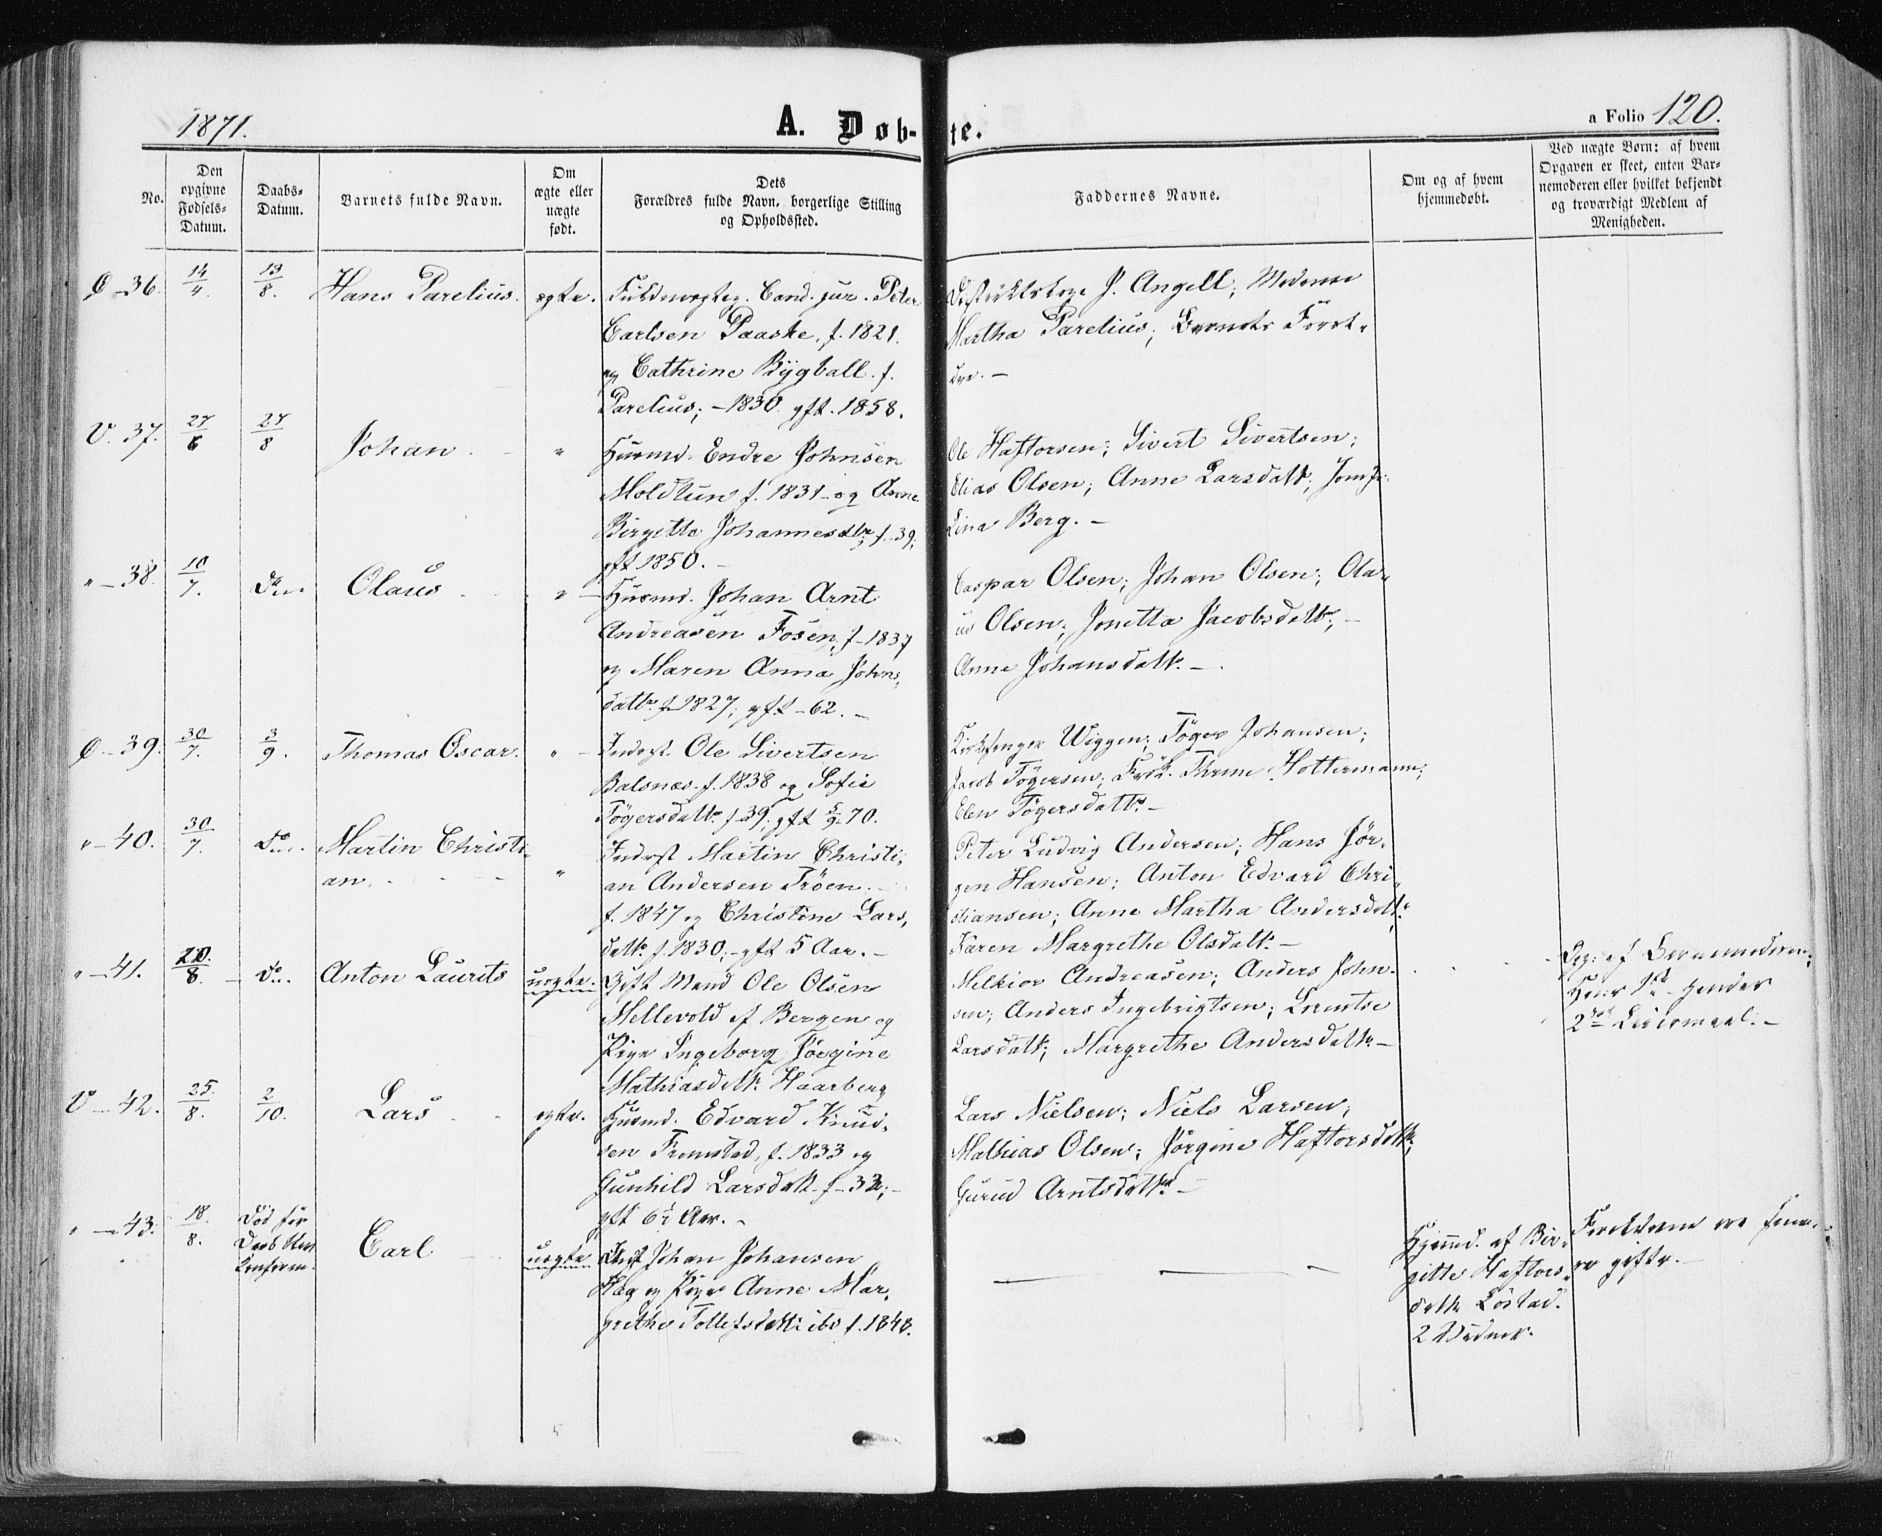 1871.
A. Døb-
te.
a Folio 120.
No.
Den
opgivne
Fødsels-
Datum.
Daabs-
Datum.
Barnets fulde Navn.
Om
ægte eller
uægte
født.
Dets
Forældres fulde Navn, borgerlige Stilling
og Opholdssted.
Faddernes Navne.
Om og af hvem
hjemmedøbt.
Ved uægte Børn: af hvem
Opgaven er skeet, enten Bar-
nemoderen eller hvilket bekjendt
og troværdigt Medlem af
Menigheden.
36. 14/4. 13/8. Hans Parelius. ægte.
Fuldmægtig. Cand. jur. Peter
Carlsen Paaske, f. 1821.
og Cathrine Bygball f.
Parelius; - 1830. gft. 1858.
Distriktslæge J. Angell; Madame
Martha Parelius; Barnets Foræl-
dre. -
V. 37. 27/6 27/8 Johan. "
Husmd. Endre Johnsen
Moldtun f. 1831 - og Anne
Birgitte Johannesdtr f. 39;
gft 1850. -
Ole Haftorsen; Sivert Sivertsen;
Elias Olsen; Anne Larsdatt.; Jomfr.
Lina Berg. -
" - 38. 10/7. Do Olaus "
Husmd. Johan Arnt
Andreasen Fosen, f. 1837
og Maren Anna Johns-
datt. f. 1827; gft - 62. -
Caspar Olsen; Johan Olsen; Ola-
us Olsen; Jonetta Jacobsdatt; -
Anne Johansdatt. -
39. 30/7. 3/9. Thomas Oscar. "
Inderst. Ole Sivertsen
Balsnæs. f. 1838 og Sofie
Tøgersdatt f. 39; gft 5/9 70.
Kirkesanger Wiggen; Tøger Johansen;
Jacob Tøgersen; Frøk. Thrine Hottermann;
Elen Tøgersdatt. -
" - 40. 30/7. Do. Martin Christi-
an. "
Inderst Martin Christi-
an Andersen Trøen. -
f. 1847 og Christine Lars-
datt. f. 1830; - gft 5 Aar. -
Peter Ludvig Andersen; Hans Jør-
gen Hansen; Anton Edvard Chri-
stiansen; Anne Martha Andersdatt.
Karen Margrethe Olsdatt. -
" - 41. 20/8. Do. Anton Laurits uægte.
Gift Mand Ole Olsen
Mellevold af Bergen og
Pige Ingeborg Jørgine
Mathiasdatt. Haarberg
Melkior Andreasen; Anders John-
sen; Anders Ingebrigtsen; Lorentse
Larsdatt; Margrethe Andersdatt. -
Opg: af Barnemoderen;
Hans 1ste hendes
2det Leiermaal. -
V - 42. 25/8. 2/10. Lars ægte.
Husmd. Edvard Knud-
sen Fremstad, f. 1833 og
Gunhild Larsdatt f. 32; -
gft 6½ Aar. -
Lars Nielsen; Niels Larsen;
Mathias Olsen; Jørgine Haftorsdatt;
Guru Arntsdatt. -
" - 43. 18/8. Død før
Daab
Carl uægte
Johan Johansen
Hæg og Pige Anne Mar-
grethe Tollefsdatt. ibd f. 1848.
Hjemmd. af Bir-
gitte Haftors-
datt. Løstad.
2 Vidner.
Forældrene ere sene-
re gifte. -